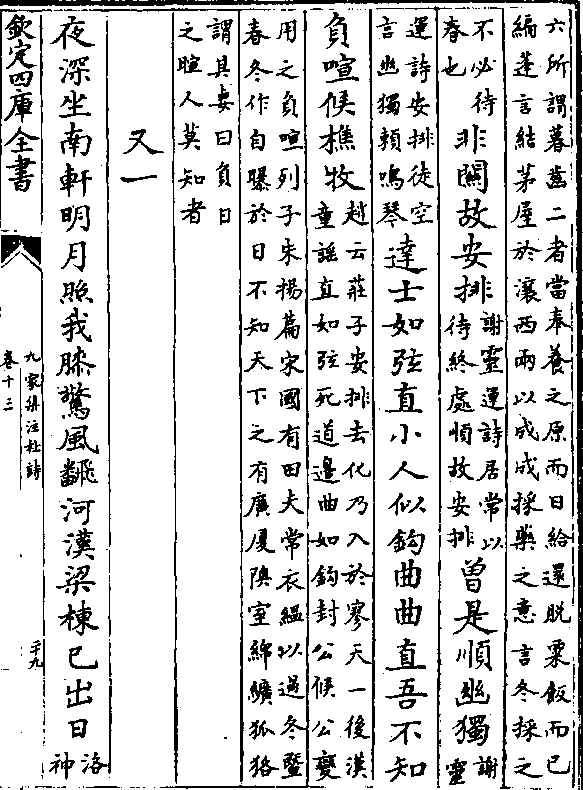 六所謂暮舊二者當奉養之原而日給還脱粟飯而已
編蓬言結茅屋於瀼西兩以成成採藥之意言冬採之
不必待
春也
非關故安排
謝靈運詩居常以
待終處順故安排
曾是順幽獨
謝
靈
運詩安排徒空
言幽獨頼鳴琴
達士如弦直小人似鈎曲曲直吾不知
負暄候樵牧
趙云莊子安排去化乃入於寥天一後漢
童謡直如弦死道邊曲如鈎封公侯公變
用之負暄列子朱揚篇宋國有田夫常衣緼以過冬暨
春冬作自曝於日不知天下之有廣厦隩室綿纊狐狢
謂其妻曰負日
之暄人莫知者
又一
夜深坐南軒明月照我膝驚風翻河漢梁棟已出日
洛
神
欽定四庫全書
九家集注杜詩
卷十三
二十九